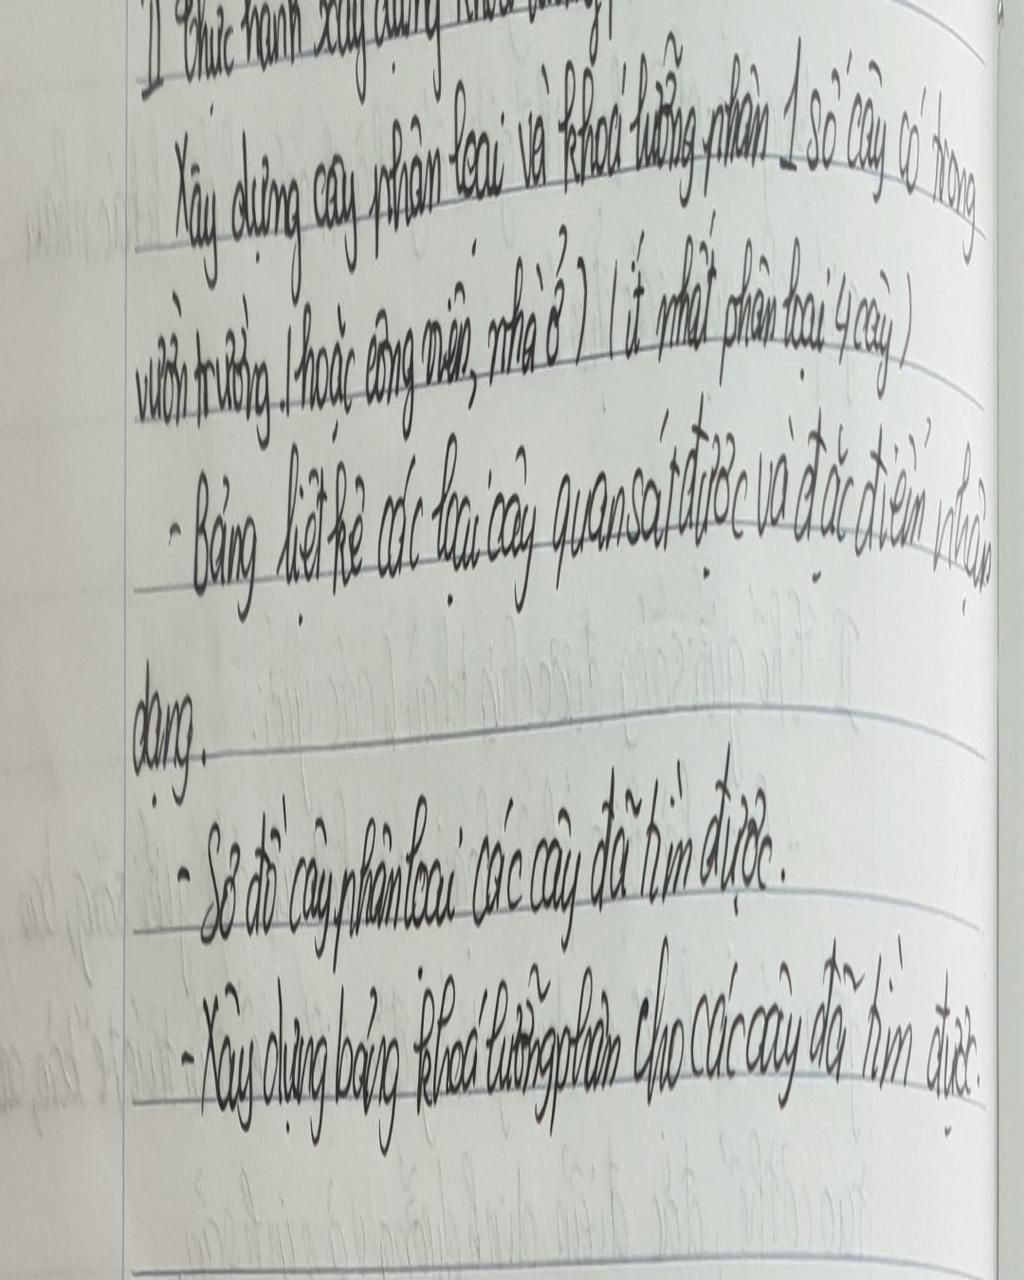 II Thực hành xây dựng khoá lưỡng
Xây dựng cây phân loại và khoá lưỡng phân 1 số cây có trong
vườn trường. (hoặc công viên, nhà ở) (ít nhất phân loại 4 cây)
- Bảng liệt kê các loại cây quan sát được và đặc điểm nhận
dạng.
- Sơ đồ cây phân loại các cây đã tìm được.
- Xây dựng bảng khoá lưỡng phân cho các cây đã tìm được.